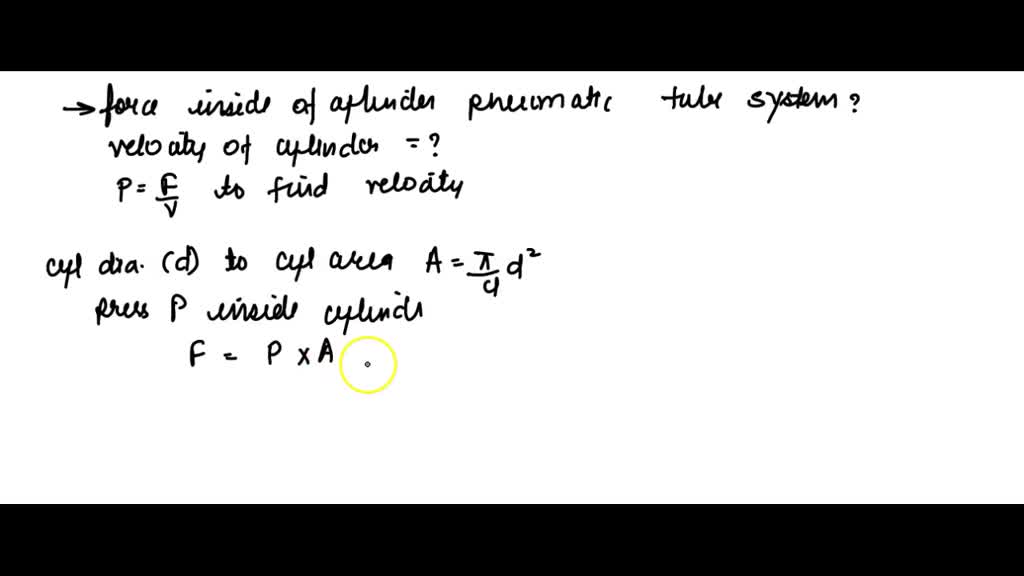 → force inside of cylinder pneumatic tube system?
velocity of cylinder = ?
P = F/V to find velocity
cyl dia. (d) to cyl area A = π/4 d²
press P inside cylinde
F = P × A